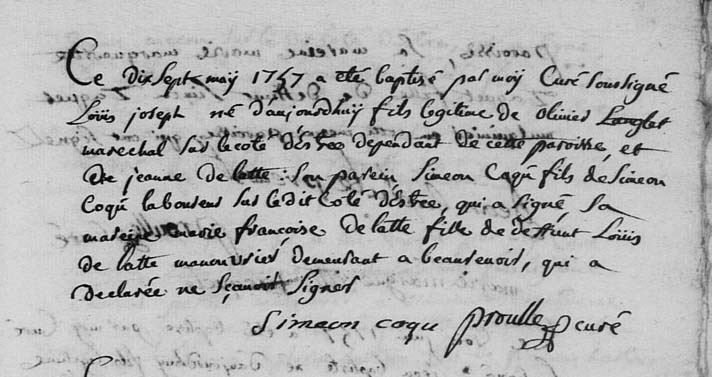 Ce Dix Sept may 1757 a eté baptisé par moy Curé soussigné
Loüis joseph né d'aujourdhuy fils legitime de olivier Langlet
marechal sur le coté déstrée dependant de cette paroisse et
De jeanne de latte : son parein Simeon Caqu fils de Simeon
Coqu laboureur sur ledit coté déstrée, qui a signé, sa
mareine marie françoise de latte fille de deffunt Loüis
de latte manouvrier demeurant a beaurevoir, qui a
declarée ne sçavoir signer
Simeon coqu proulle curé